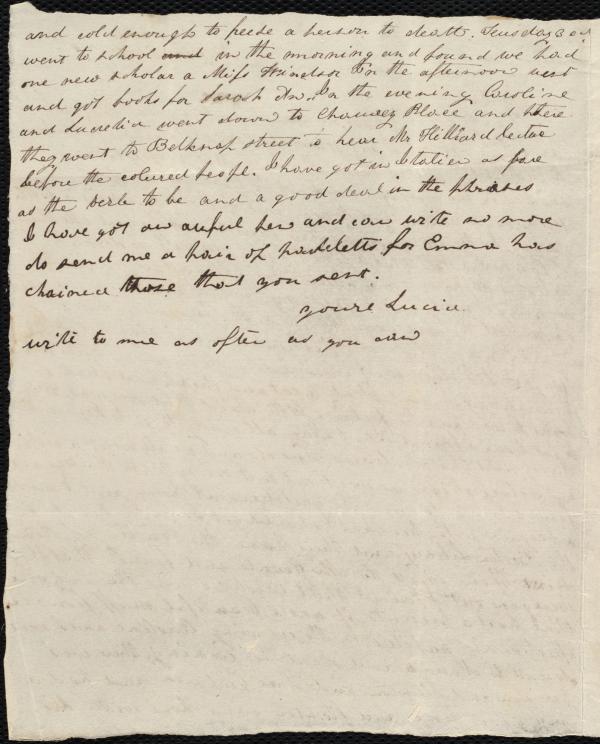 and cold enough to freese a person to death. Tuesday 3 oc
went to school and in the morning and found we had
one new scholar a Miss Windsor In the afternoon went
and got books for Sarah An. In the evening Caroline
and Lucretia went down to Chauncy Place and there
they went to Belknap street to hear Mr Hilliard lectue
before the coloured people. I have got in Italien as fare
as the verbe to be and a good deal in the phrases
I have got an awful pen and can write no more
do send me a pair of for Emma has
chained those that you sent.
youre Lucia
write to me as often as you can